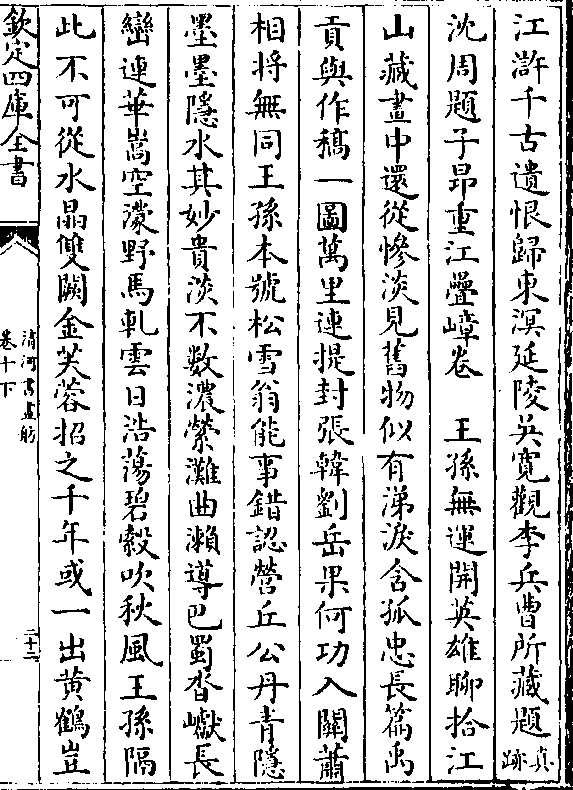 江滸千古遺恨歸東溟延陵吳寛觀李兵曹所藏題真跡
沈周題子昻重江疊嶂卷　王孫無運開英雄聊拾江
山藏畫中還從慘淡見舊物似有涕淚含孤忠長篇禹
貢與作稿一圖萬里連提封張韓劉岳果何功入關蕭
相將無同王孫本號松雪翁能事錯認營丘公丹青隱
墨墨隱水其妙貴淡不數濃縈灘曲瀨導巴蜀沓巘長
巒連華嵩空濛野馬軋雲日浩蕩碧縠吹秋風王孫隔
此不可從水晶雙闕金芙蓉招之千年或一出黄鶴豈
欽定四庫全書
清河書畫舫
卷十下
二十二